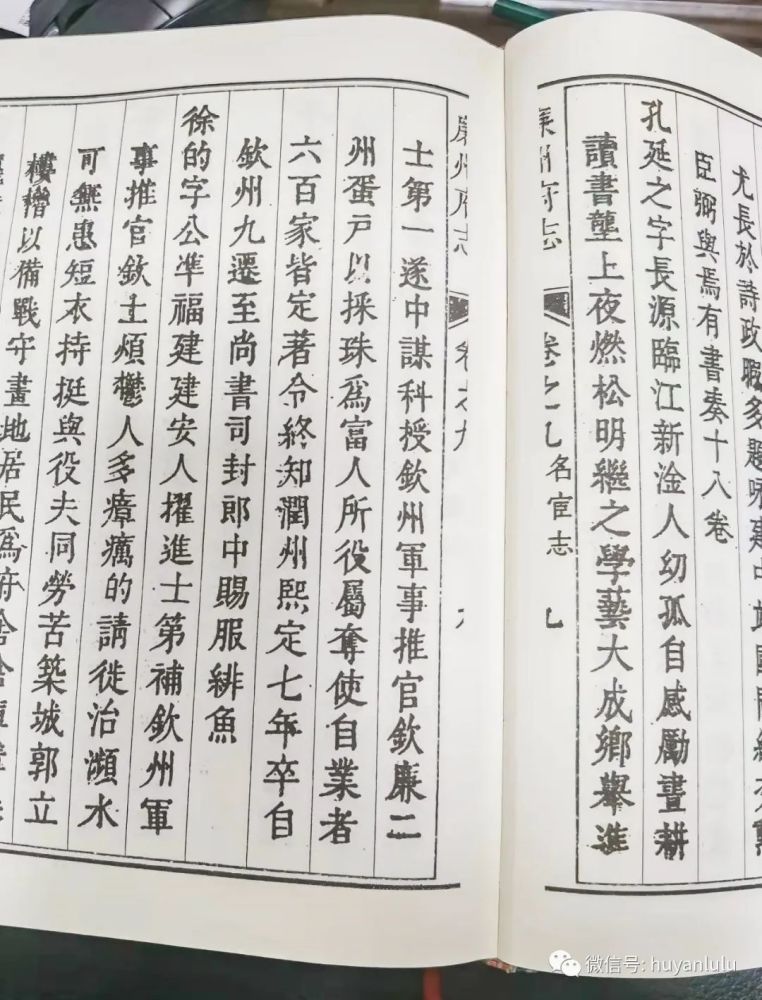 尤長於詩政暇多題咏建中靖國間
臣弼與焉有書奏十八卷
孔延之字長源臨江新淦人幼孤自感勵晝耕
讀書壟上夜燃松明繼之學藝大成鄉舉進
廉州府志 卷之九 名宦志 九
廉州府志 卷之九
士第一遂中謀科授欽州軍事推官欽廉二
州蛋戶以採珠爲富人所役屬奪使自業者
六百家皆定著令終知潤州熙定七年卒自
欽州九遷至尚書司封郎中賜服緋魚
徐的字公準福建建安人擢進士第補欽州軍
事推官欽土煩鬱人多瘴癘的請徙治瀕水
可無患短衣持挺與役夫同勞苦築城郭立
樓櫓以備戰守畫地居民爲府舍
微信号: huyanlulu